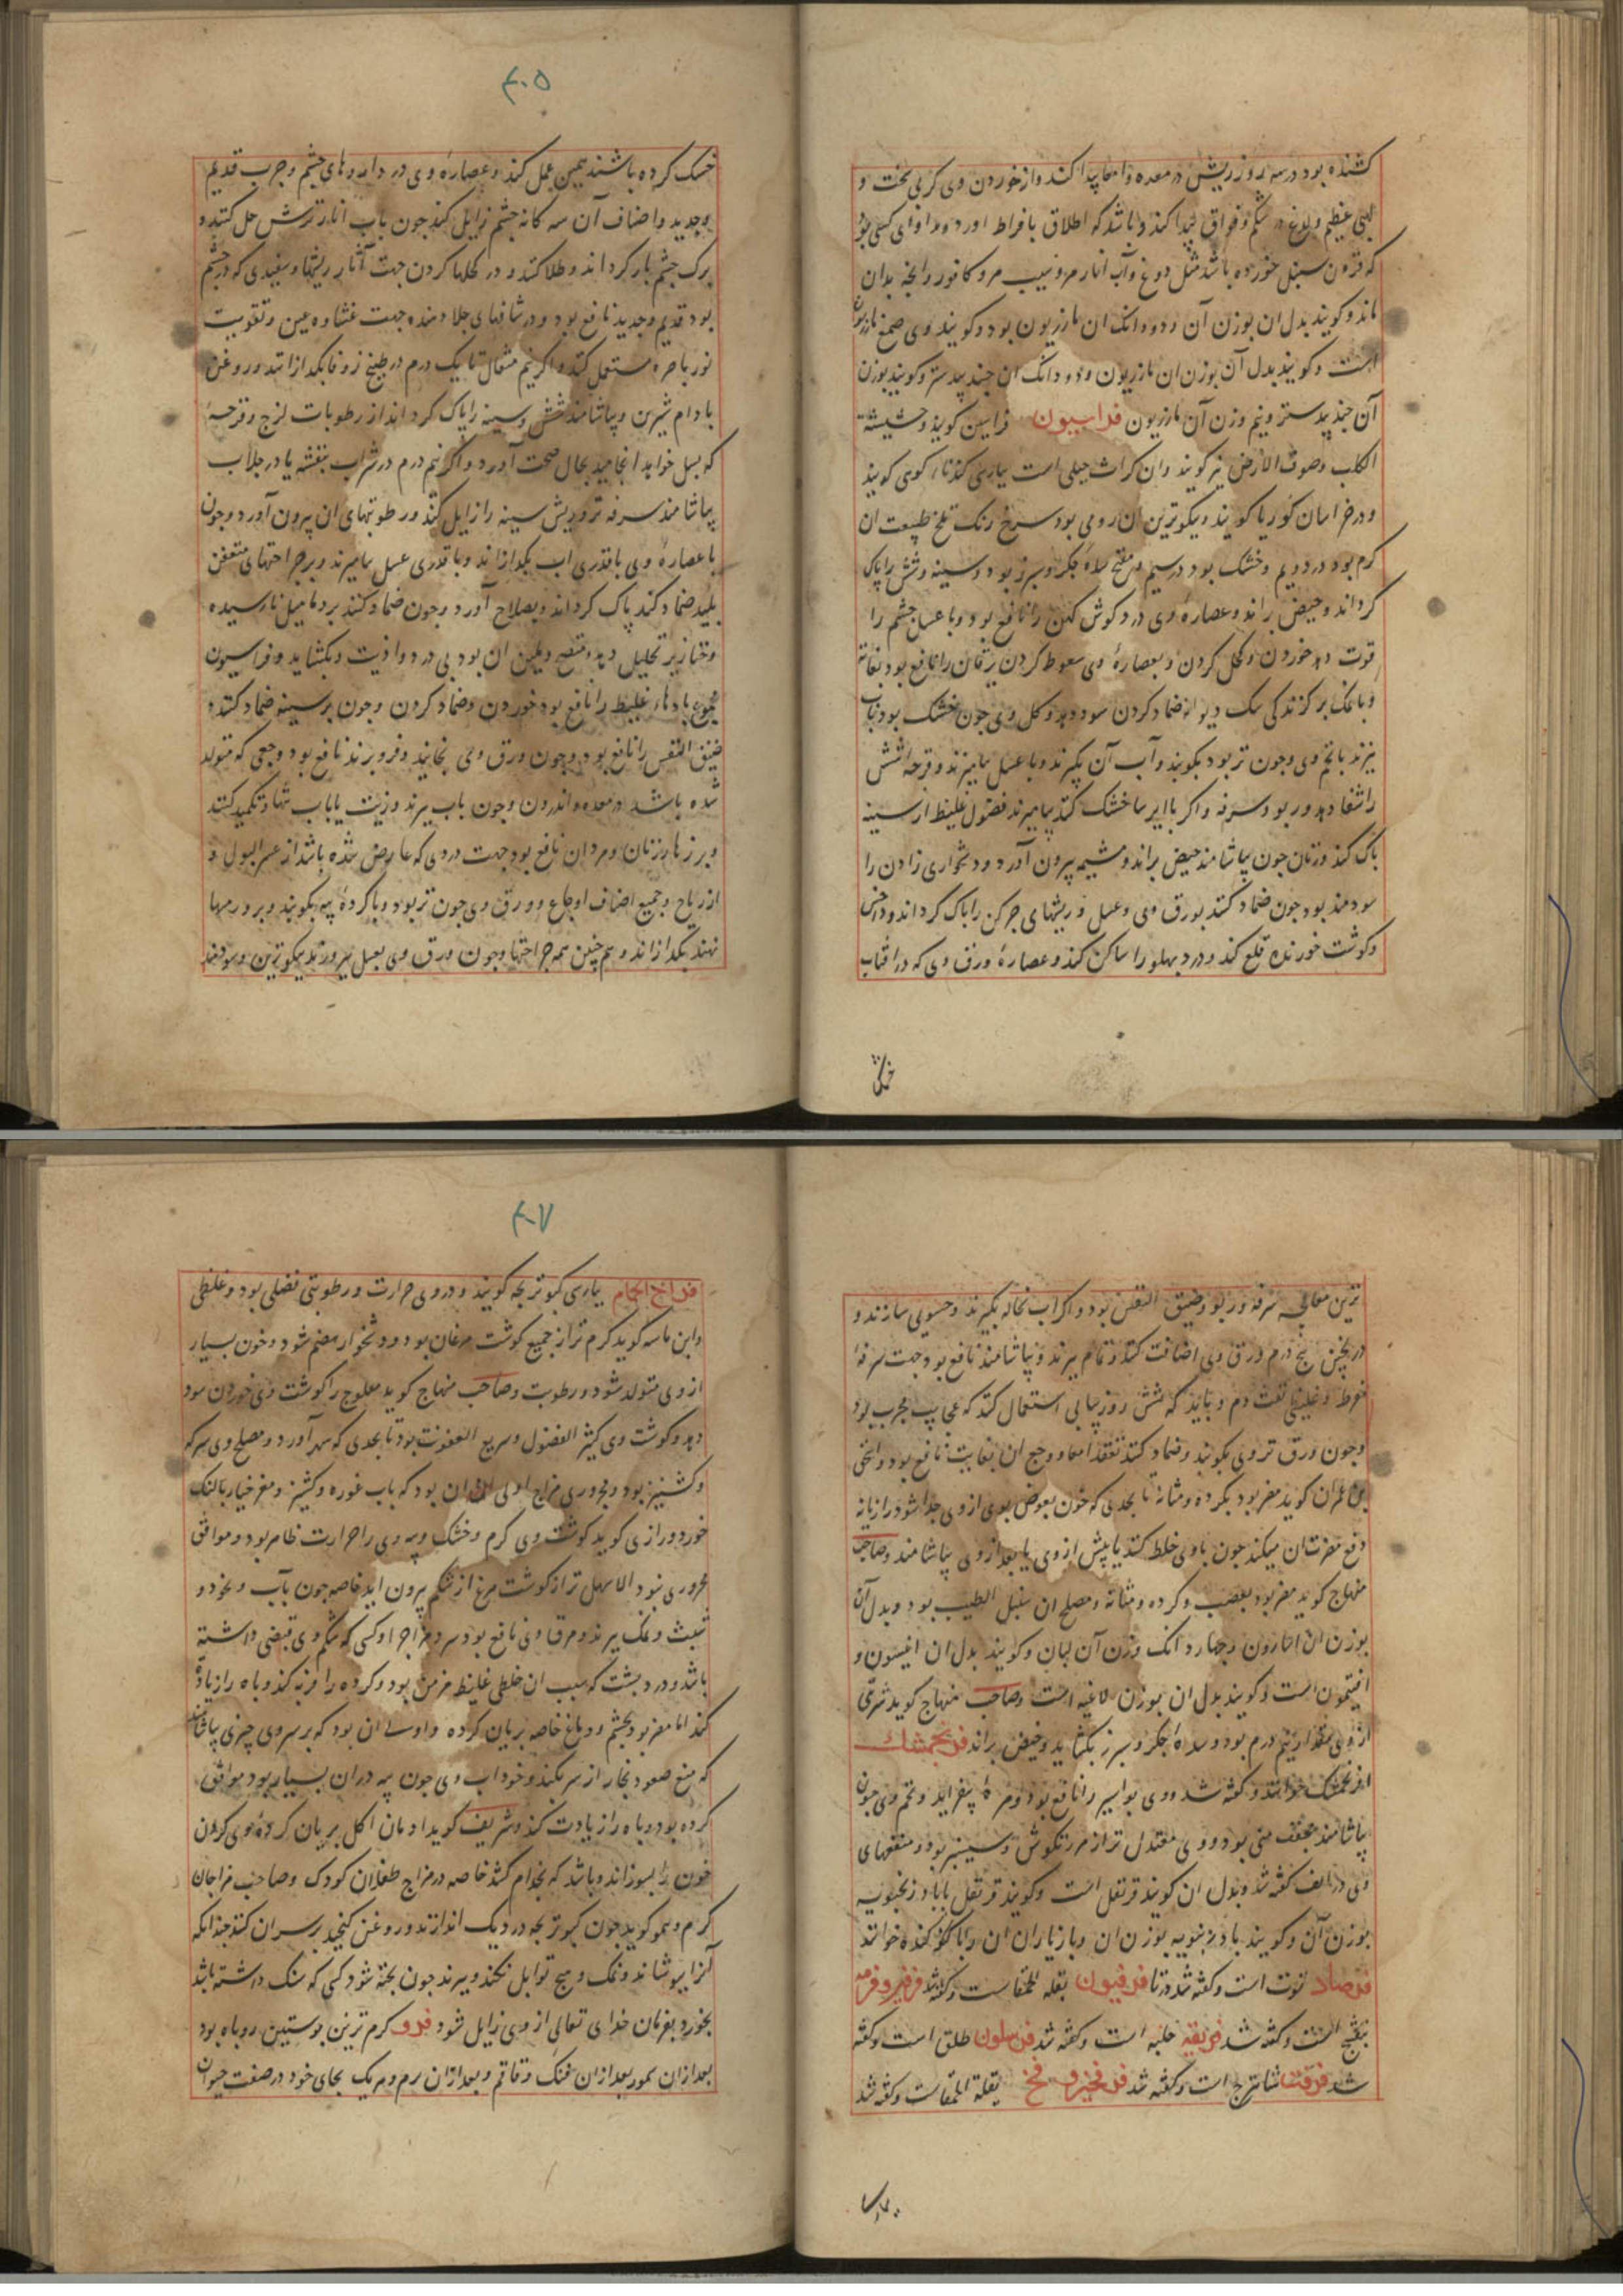 کشنده بود در سه روز ریش در معده و امعا پیدا کند و از خوردن وی کربی سخت و
عظیم و لذع در شکم و فواق پیدا کند و باشد که اطلاق بافراط آورد و مداوای کسی بود
که قرون سنبل خورده باشد مثل دوغ و آب انار مز و سیب مز و کافور و آنچه بدان
ماند و کویند بدل ان بوزن آن و دو دانک ان مازریون بود و کویند وی صمغ مازریون
است و کویند بدل آن بوزن ان مازریون و دو دانک ان جند بیدستر و کویند بوزن
آن جند بیدستر و نیم وزن آن مازریون فراسیون فراسین کویند و حشیشة
الکلب و صوف الارض نیز کویند و ان کراث جبلی است بپارسی کندناء کوهی کویند
و در خراسان کوریا کویند و نیکوترین ان رومی بود سرخ رنک تلخ طبیعت ان
کرم بود در دویم و خشک بود در سیم و مفتح سده جکر و سپرز بود و سینه و شش را پاک
کرداند و حیض براند و عصاره وی درد کوش کهن را نافع بود و با عسل چشم را
قوت دهد خوردن و کحل کردن و بعصاره وی سعوط کردن یرقان را نافع بود بغایة
و با نمک بر کزندکی سک دیوانه ضماد کردن سود دهد و کل وی چون خشک بود بآب
بپزند با تخم وی و چون تر بود بکوبند و آب آن بکیرند و با عسل بیامیزند و قرحه شش
را شفا دهد و ربو و سرفه و اکر با ایرسا خشک کند بیامیزند فضول غلیظ از سینه
پاک کند و زنان چون بیاشامند حیض براند و مشیمه بیرون آورد و دشخواری زادن را
سودمند بود چون ضماد کنند بورق وی و عسل و ریشهای چرکن را پاک کرداند و داخس
و کوشت خورنده قلع کند و درد پهلو را ساکن کند و عصاره ورق وی که در افتاب
خشک
۴۰۵
خشک کرده باشند همین عمل کند و عصاره وی در داروهای چشم و جرب قدیم
و جدید و اصناف آن سه کانه چشم زایل کند چون بآب انار ترش حل کنند و
برک چشم باز کردانند و طلا کنند و در کحلها کردن جهت آثار ریشها و سفیدی که در چشم
بود قدیم و جدید نافع بود و در شافهای جلا دهنده جهت غشاوه عین و تقویت
نور باصره مستعمل کنند و اکر نیم مثقال تا یک درم در طبیخ زوفا بکدازانند و روغن
بادام شیرین و بیاشامند شش و سینه را پاک کرداند از رطوبات لزج و قرحهٔ
که بسل خواهد انجامید بحال صحت آورد و اکر نیم درم در شراب بنفشه یا در جلاب
بیاشامند سرفه تر و ریش سینه را زایل کند و رطوبتهای ان بیرون آورد و چون
با عصاره وی با قدری اب بکدازاند و با قدری عسل بیامیزند و بر جراحتهای متعفن
پلید ضماد کند پاک کرداند و بصلاح آورد و چون ضماد کنند بر دمامیل نارسیده
و خنازیر تحلیل دهد و منضج و ملین ان بود بی درد و اذیت و بکشاید و فراسیون
جمیع بادهاء غلیظ را نافع بود خوردن و ضماد کردن و چون بر سینه ضماد کنند
ضیق النفس را نافع بود و چون ورق وی بخایند و فرو برند نافع بود وجعی که متولد
شده باشد در معده و اندرون و چون باب بپزند و زیت یا باب تنها و تکمید کنند
و بر زهار زنان و مردان نافع بود جهت دردی که عارض شده باشد از عسر البول و
از ریاح و جمیع اصناف اوجاع و ورق وی چون تر بود و با کرده پیه بکوبند و بر ورمها
نهند بکدازاند و هم چنین همه جراحتها و چون ورق وی بعسل بپرورند نیکوترین و سودمند
ترین معالجه سرفه و ربو و ضیق النفس بود و اکر اب نخاله بکیرند و حسوی سازند و
در پختن پنج درم ورق وی اضافت کنند و تمام بپزند و بیاشامند نافع بود جهت سرفهٔ
مفرط و غلیظی نفث دم و باید که شش روز پیاپی استعمال کنند که عجایب مجرب بود
و چون ورق تر وی بکوبند و ضماد کنند نفخ امعا و وجع ان بغایت نافع بود و اسحق
بن عمران کوید مضر بود بکرده و مثانه تا بحدی که خون بعوض بول از وی جدا شود و رازیانه
دفع مضرت ان میکند چون با وی خلط کنند یا پیش از وی یا بعد از وی بیاشامند و صاحب
منهاج کوید مضر بود بعصب و کرده و مثانه و مصلح ان سنبل الطیب بود و بدل آن
بوزن ان اسارون و چهار دانک وزن آن لبان و کویند بدل ان انیسون و
افتیمون است و کویند بدل ان بوزن لاغیه است و صاحب منهاج کوید شربتی
از وی مقدار نیم درم بود و سده جکر و سپرز بکشاید و حیض براند فرنجمشک
افرنجمشک خوانند و کفته شد و وی بواسیر را نافع بود و مره بیفزاید و تخم وی چون
بیاشامند مجفف منی بود و وی معتدل تر از مرزنکوش و سیسنبر بود و منفعتهای
وی در الف کفته شد و بدل ان کویند قرنفل است و کویند قرنفل با بادرنجبویه
بوزن آن و کویند بادرنجبویه بوزن ان و بازیاران ان را پاکنده خوانند
فرصاد توت است و کفته شد در تا فرفیون بقلة الحمقاست و کفته شد فرفیر و فرفه
بنفسج است و کفته شد فریقه حلبه است و کفته شد فرسلون طلق است و کفته
شد فرقتا شاتترج است و کفته شد فرفخیر و فرفخ بقلة الحمقاست و کفته شد
۴۰۷
فراخ الحمام بپارسی کبوتر بچه کویند و در وی حرارت و رطوبتی فضلی بود و غلظی
و ابن ماسه کوید کرم تر از جمیع کوشت مرغان بود و دشخوار هضم شود و خون بسیار
از وی متولد شود و رطوبت و صاحب منهاج کوید مفلوج را کوشت وی خوردن سود
دهد و کوشت وی کثیر الفضول و سریع العفونت بود تا بحدی که سهر آورد و مصلح وی سرکه
و کشنیز بود و محروری مزاج اولی ان بود که باب غوره و کشنیز و مغز خیار بالنک
خورد و رازی کوید کوشت وی کرم و خشک و پیه وی را حرارت ظاهر بود و موافق
محروری نبود الا سهل تر از کوشت مرغ از شکم بیرون اید خاصه چون بآب و نخود و
شبث و نمک بپزند و مرق وی نافع بود سرد مزاج را و کسی که شکم وی قبضی داشته
باشد و درد پشت که سبب ان خلطی غلیظ مزمن بود و کرده را فربه کند و باه را زیاده
کند اما مضر بود بچشم و دماغ خاصه بریان کرده و اولی ان بود که بر سر وی چیزی بیاشامند
که منع صعود بخار از سر بکند و خوداب وی چون پیه در ان بسیار بود موافق
کرده بود و باه را زیادت کند و شریف کوید ادمان اکل بریان کرده وی کردن
خون را بسوزاند و باشد که بجذام کشد خاصه در مزاج طفلان کودک و صاحب مزاجان
کرم و همو کوید چون کبوتر بچه در دیک اندازند و روغن کنجد بر سر ان کنند چندانکه
آنرا بپوشاند و نمک و هیچ توابل نکنند و بپزند چون پخته شود کسی که سنک داشته باشد
بخورد بفرمان خدای تعالی از وی زایل شود فرو کرم ترین پوستین روباه بود
بعد از ان سمور بعد از ان فنک و قاقم و بعد از ان بره و هر یک بجای خود در صفت حیوان